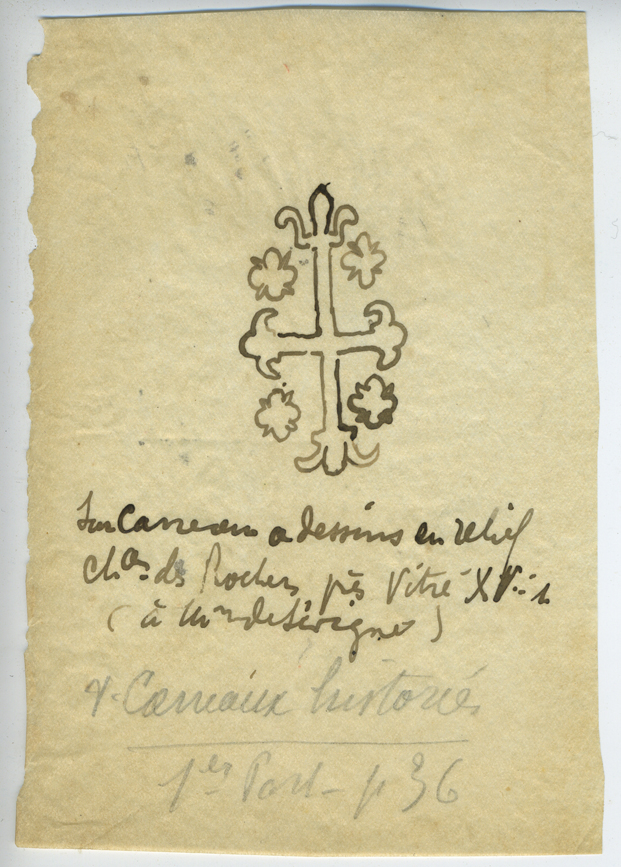 Sur Carreau a dessins en relief
chau des Rochers près Vitré XVe s.
( à Mme de Sévigné )
V. Carreaux historiés
1er Part - p 36